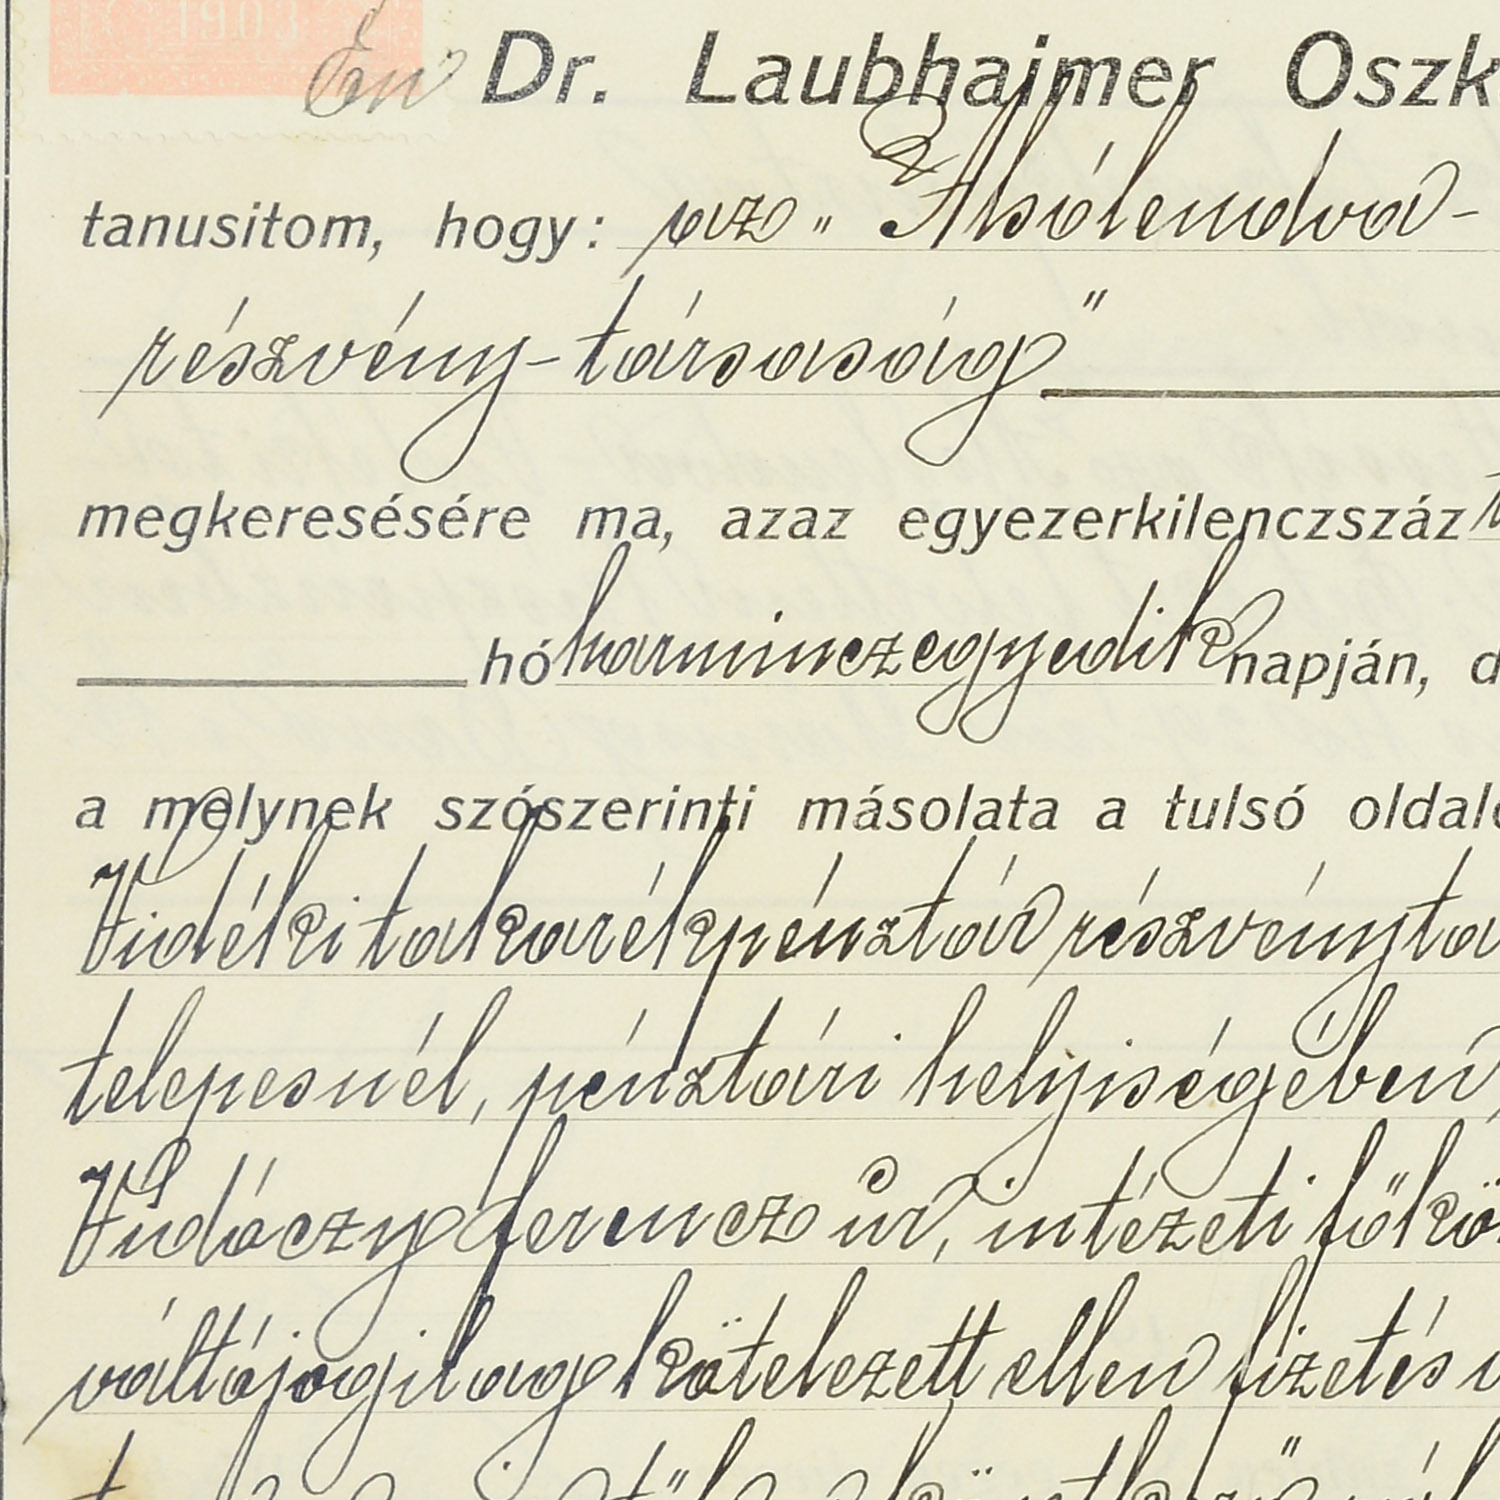 1903
Én Dr. Laubhaimer Oszk
tanusitom, hogy: az „Alsólendva-
részvény-társaság"
megkeresésére ma, azaz egyezerkilenczszáz
hó harminczegyedik napján, d
a melynek szószerinti másolata a tulsó oldalo
Vidéki takarékpénztár részvényta
telepesnél, pénztári helyiségében,
Vidóczy Ferencz úr, intézeti főkö
váltójogilag kötelezett ellen fizetés